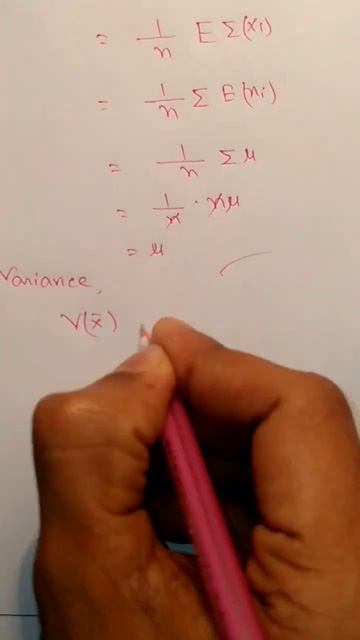 = 1/n E Σ(xi)
= 1/n Σ E(xi)
= 1/n Σ μ
= 1/n · nμ
= μ
Variance,
V(x̄)